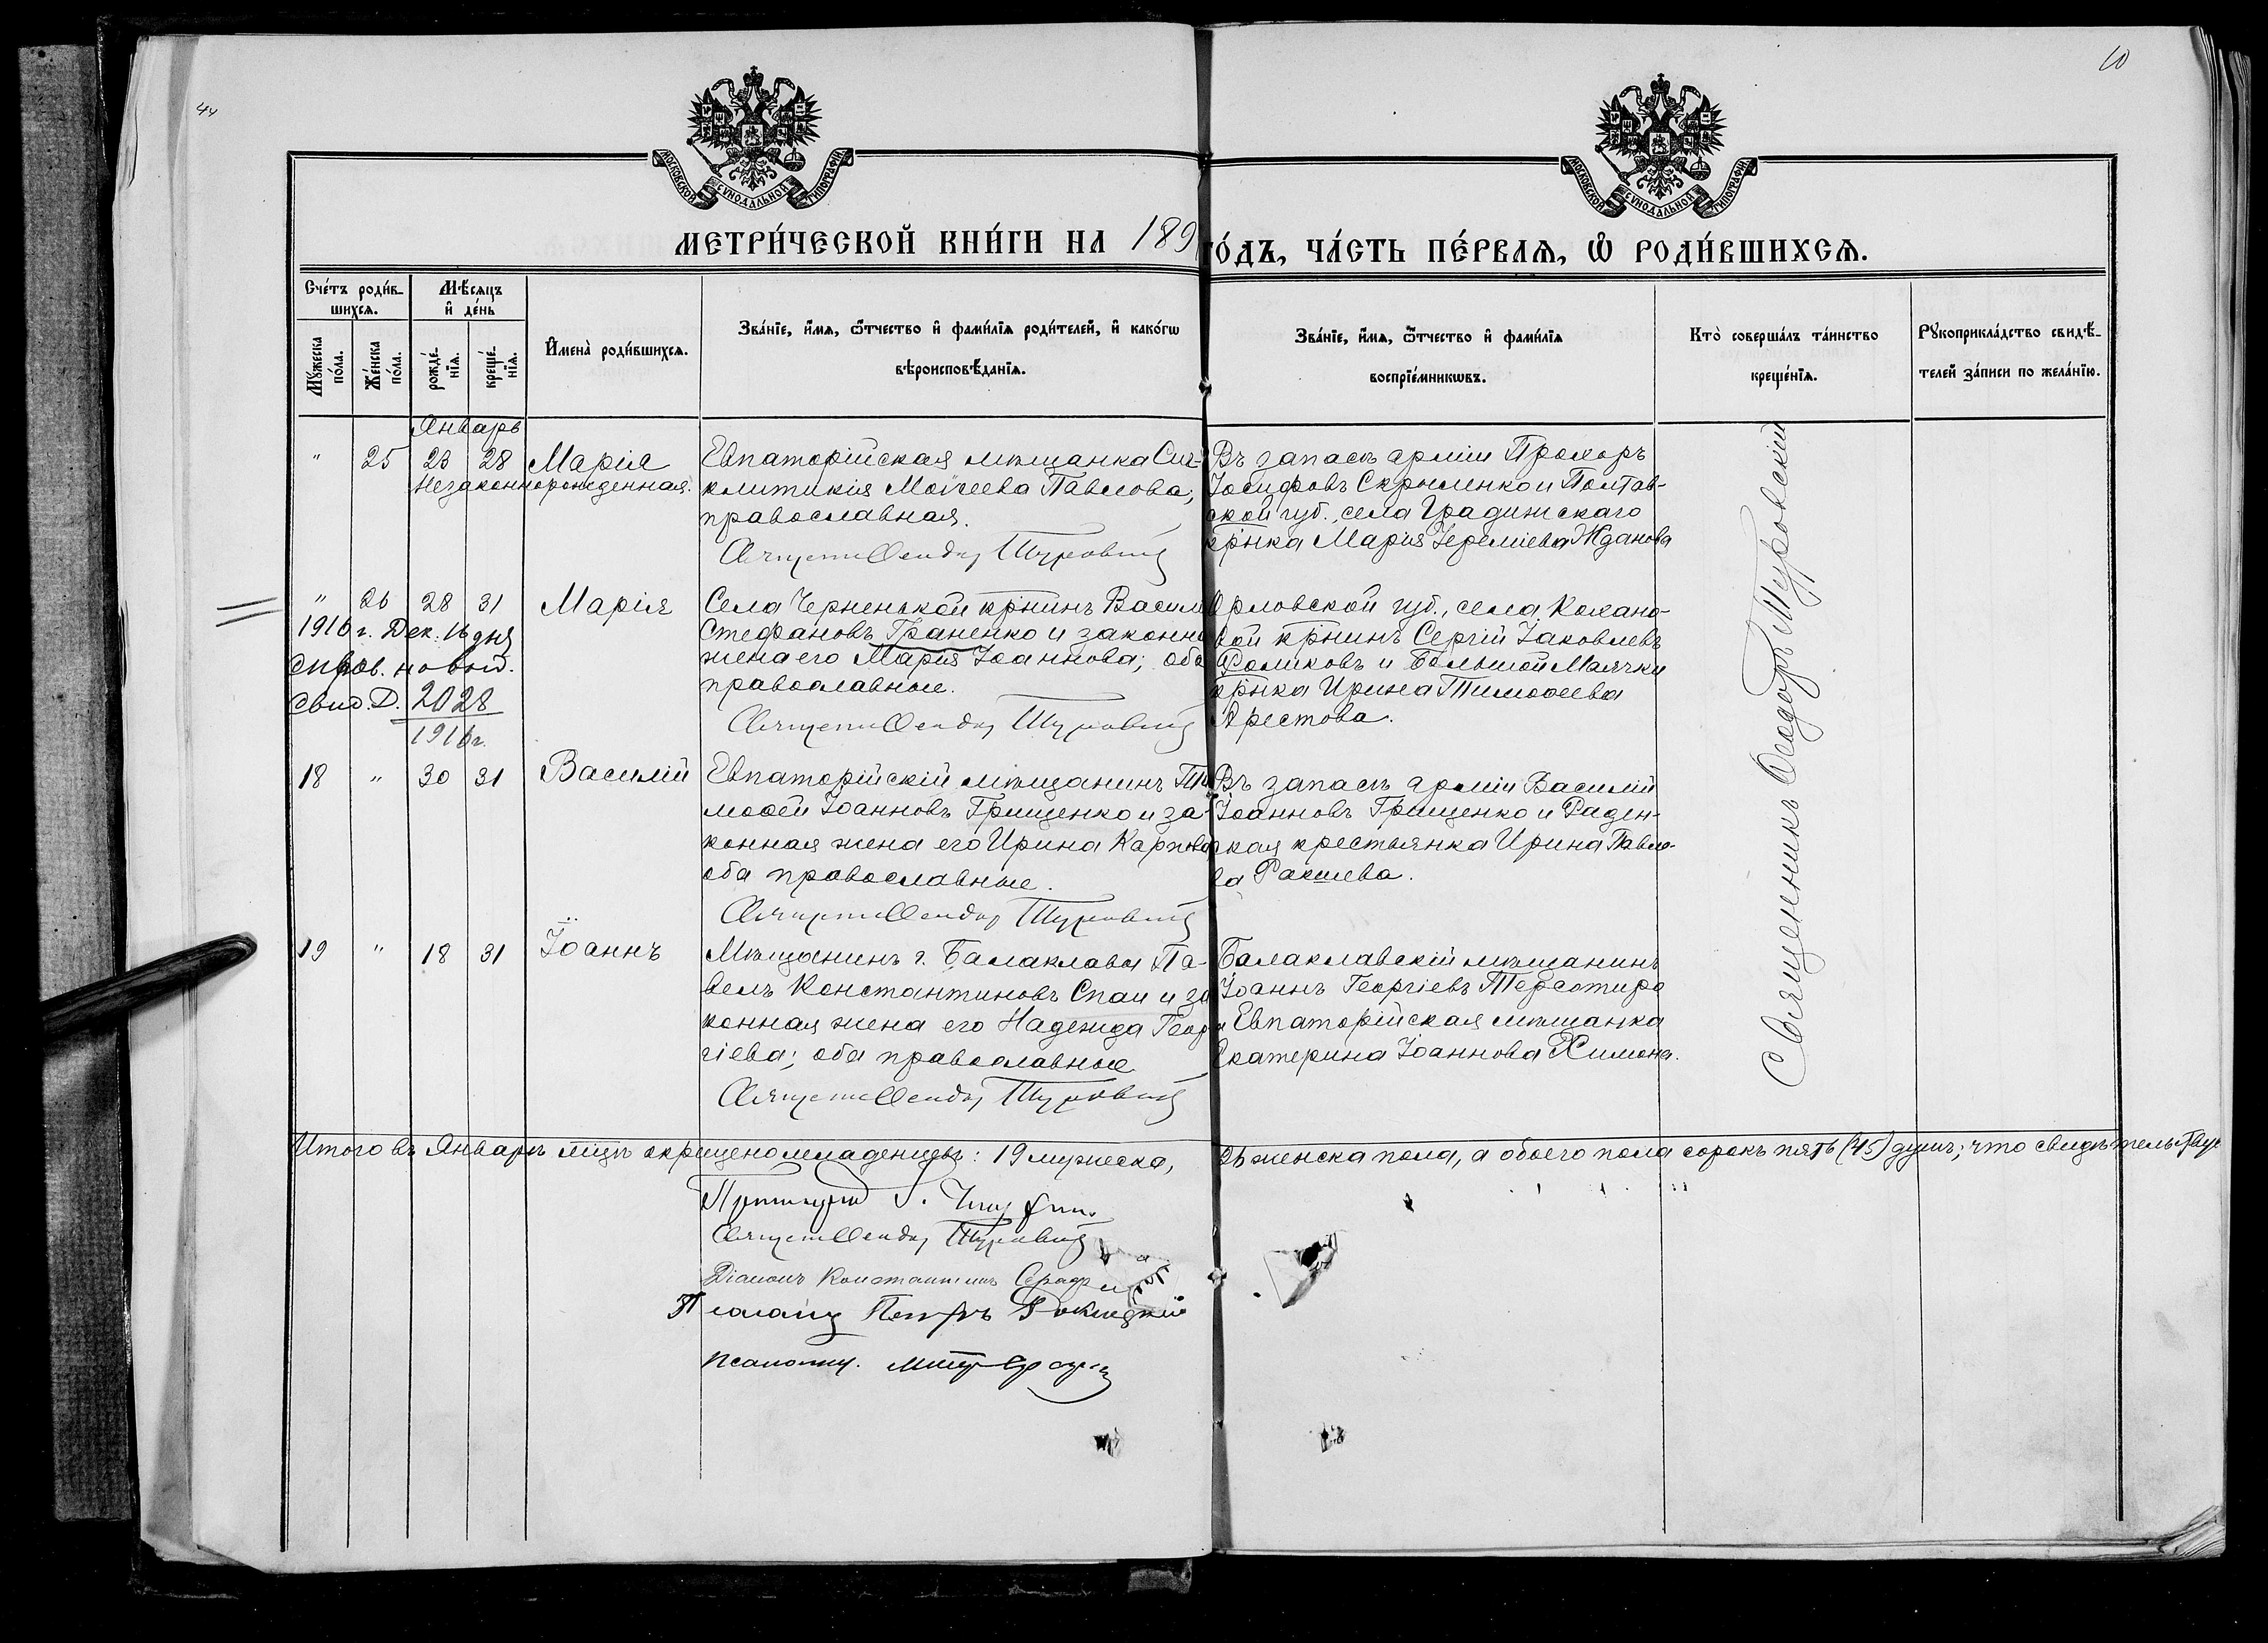 10
44
МОСКОВСКОЙ СУНОДАЛЬНОЙ ТИПОГРАФІИ
МОСКОВСКОЙ СУНОДАЛЬНОЙ ТИПОГРАФІИ
МЕТРИ́ЧЕСКОЙ КНИ́ГИ НА 189
ГО́ДЪ, ЧА́СТЬ ПЕ́РВАѦ, Ѡ҆ РОДИ́ВШИХСѦ.
Сче́тъ роди́в-
шихсѧ.
Мѣ́сѧцъ
и҆ де́нь
Мꙋ́жеска
по́ла.
Же́нска
по́ла.
рожде́-
нїѧ.
креще́-
нїѧ.
И҆мена̀ роди́вшихсѧ.
Зва́нїе, и҆́мѧ, ѻ҆́тчество и҆ фами́лїѧ роди́телей, и҆ како́гѡ
вѣроисповѣ́данїѧ.
Зва́нїе, и҆́мѧ, ѻ҆́тчество и҆ фами́лїѧ
воспрїе́мникѡвъ.
Кто̀ соверша́лъ та́инство
креще́нїѧ.
Рꙋкоприкла́дство свидѣ́-
телей за́писи по жела́нїю.
Январь
" 25 23 28 Марія
Незаконнорожденная.
Евпаторійская мѣщанка Син-
клитикія Моѵсеева Павлова;
православная.
Священникъ Ѳеодоръ Туровскій
Въ запасѣ арміи Прохоръ
Іосифовъ Скрыленко и Полтав-
ской губ., села Градижскаго
кр̅нка Марія Іереміева Жданова
" 26 28 31 Марія
1916 г. Дек. 16 дня
Свид. Д. 2028
1916 г.
Села Черненькой кр̅нинъ Васил
Стефановъ Граненко и законн
жена его Марія Іоаннова; оба
православные.
Священникъ Ѳеодоръ Туровскій
Орловской губ., села Кохано-
вой кр̅нинъ Сергій Іаковлевъ
Фомиковъ и Большой Маячки
кр̅нка Ирина Тимоѳеева
Арестова.
18 " 30 31 Василій
Евпаторійскій мѣщанинъ Ти
моѳей Іоанновъ Грищенко и за-
конная жена его Ирина Карпова
оба православные.
Священникъ Ѳеодоръ Туровскій
Въ запасѣ арміи Василій
Іоанновъ Грищенко и Раден-
ская крестьянка Ирина Павло-
ва Ракшева.
19 " 18 31 Іоаннъ
Мѣщанинъ г. Балаклавы Па-
велъ Константиновъ Спаи и за
конная жена его Надежда Геор
гіева; оба православные
Священникъ Ѳеодоръ Туровскій
Балаклавскій мѣщанинъ
Іоаннъ Георгіевъ Терсотиро
и Евпаторійская мѣщанка
Екатерина Іоаннова Химона.
Священникъ Ѳеодоръ Туровскій
Итого въ Январѣ мцѣ окрещено младенцевъ: 19 мужеска, 26 женска пола, а обоего пола сорокъ пять (45) душъ; что свидѣтельству
Священникъ Ѳеодоръ Туровскій
Діаконъ Константинъ
Псаломщ Петръ
Псаломщ.